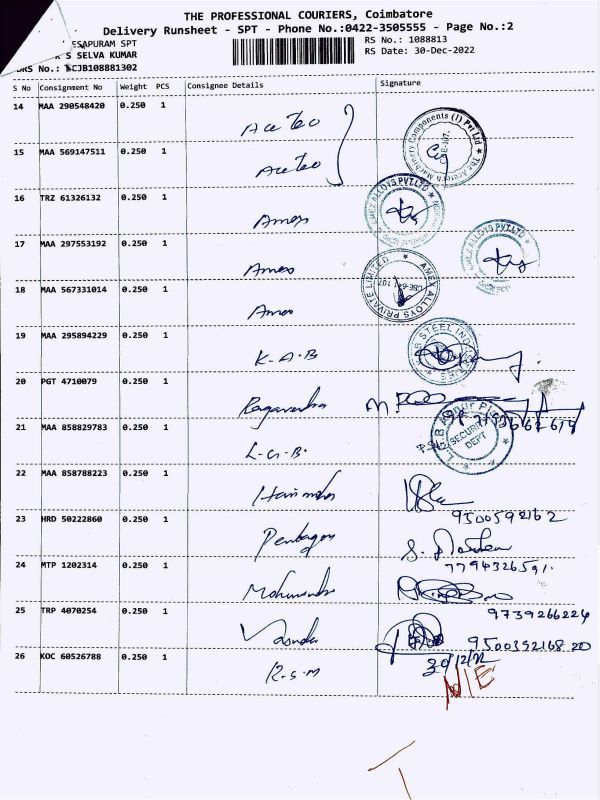 THE PROFESSIONAL COURIERS, Coimbatore
Delivery Runsheet - SPT - Phone No.:0422-3505555 - Page No.:2
ESAPURAM SPT
RS No.: 1088813
S SELVA KUMAR
RS Date: 30-Dec-2022
DRS No.: CJB108881302
S No Consignment No Weight PCS Consignee Details Signature
14 MAA 290548420 0.250 1
Ace Tec
15 MAA 569147511 0.250 1
Ace Tec
16 TRZ 61326132 0.250 1
Amex
17 MAA 297553192 0.250 1
Amex
18 MAA 567331014 0.250 1
Amex
19 MAA 295894229 0.250 1
K.A.B
20 PGT 4710079 0.250 1
Ragavendra
21 MAA 858829783 0.250 1
L.G.B. SECURITY DEPT
22 MAA 858788223 0.250 1
9500592162
23 HRD 50222860 0.250 1
Pentagon
24 MTP 1202314 0.250 1
7794326591.
25 TRP 4070254 0.250 1
9739266224
Vasudev
26 KOC 60526788 0.250 1
30/12/22
R.S.M
N/E